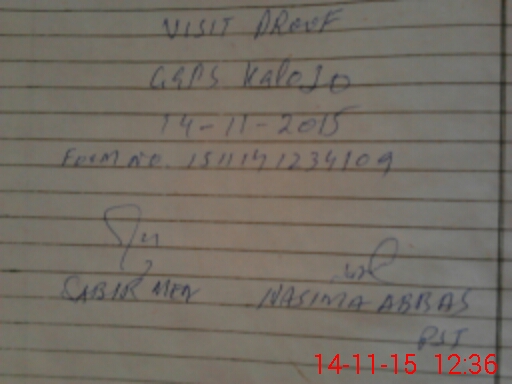 VISIT PROVF
GGPS Kalo Jo
14-11-2015
Form no. 1511141234109
SABIR MEN NASIMA ABBAS
PST
14-11-15 12:36